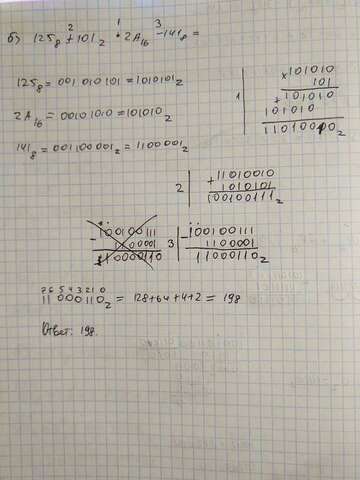 2 1 3
б) 125₈ + 101₂ * 2A₁₆ - 141₈ =
125₈ = 001 010 101 = 1010101₂
2A₁₆ = 0010 1010 = 101010₂
141₈ = 001100001₂ = 1100001₂
1
×101010
101
+101010
101010
11010010₂
2
+11010010
1010101
100100111₂
-100100111
1100001
11000110
3
-100100111
1100001
11000110₂
7 6 5 4 3 2 1 0
11000110₂ = 128+64+4+2 = 198
Ответ: 198.